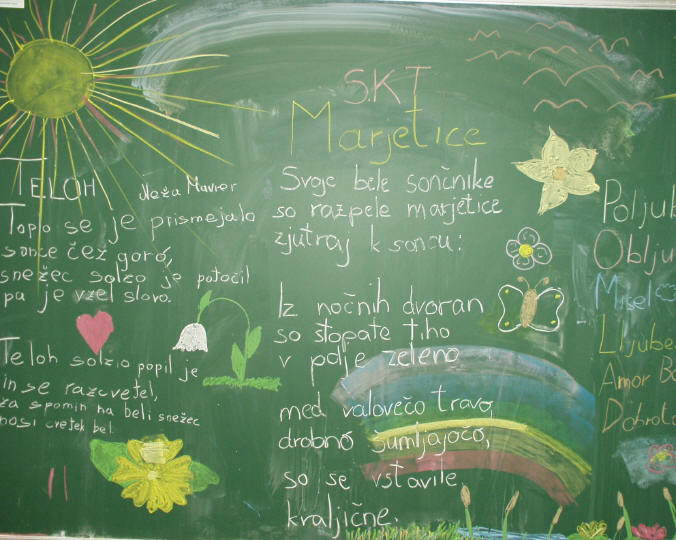 TELOH Neža Maurer
Toplo se je prismejalo
sonce čez goró,
snežec solzo je potočil
pa je vzel slovo.
Teloh solzo popil je
in se razcvetel,
za spomin na beli snežec
nosi cvetek bel.
S.K.T
Marjetice
Svoje bele sončnike
so razpele marjetice
zjutraj k soncu:
Iz nočnih dvoran
so stopale tiho
v polje zeleno
med valovečo travo,
drobno šumljajočo,
so se vstavile
kraljične.
Poljub
Oblju
Misel
Ljube
Amor
Dobrot